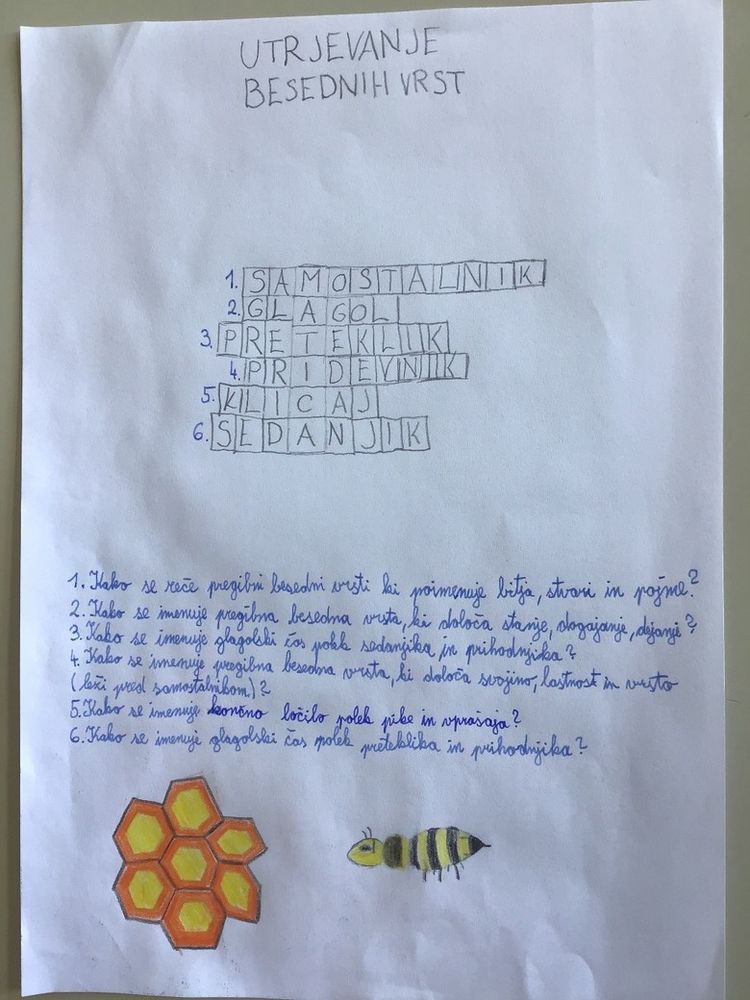 UTRJEVANJE
BESEDNIH VRST
1. SAMOSTALNIK
2. GLAGOL
3. PRETEKLIK
4. PRIDEVNIK
5. KLICAJ
6. SEDANJIK
1. Kako se reče pregibni besedni vrsti ki poimenuje bitja, stvari in pojme?
2. Kako se imenuje pregibna besedna vrsta, ki določa stanje, dogajanje, dejanje?
3. Kako se imenuje glagolski čas polek sedanjika in prihodnjika?
4. Kako se imenuje pregibna besedna vrsta, ki določa svojino, lastnost in vrsto
(leži pred samostalnikom)?
5. Kako se imenuje končno ločilo polek pike in vprašaja?
6. Kako se imenuje glagolski čas polek preteklika in prihodnjika?